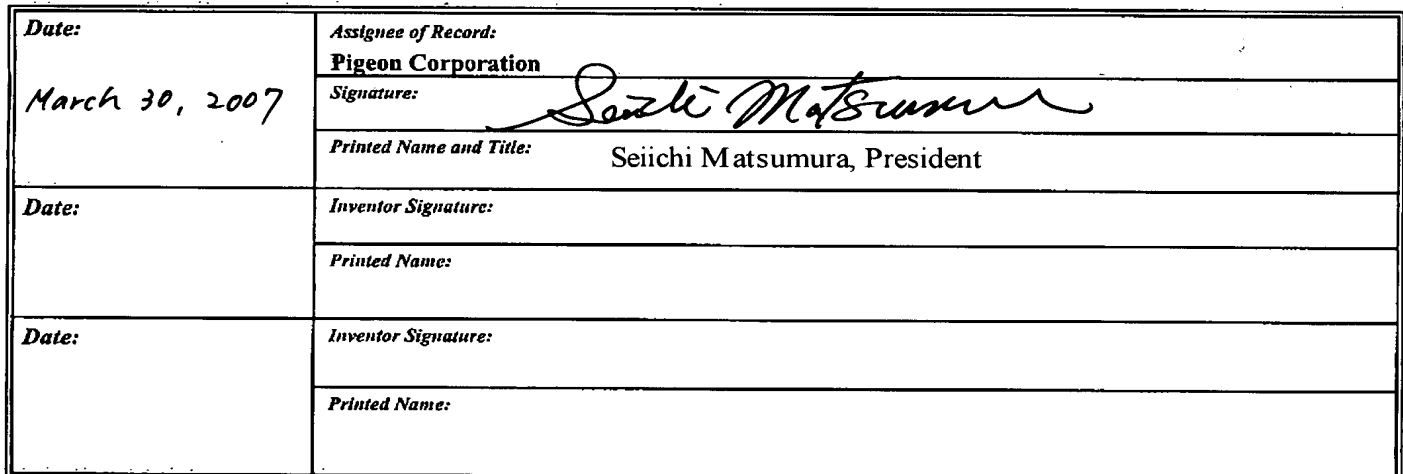 Date:
March 30, 2007
Assignee of Record:
Pigeon Corporation
Signature:
Seiichi Matsumura
Printed Name and Title:
Seiichi Matsumura, President
Date:
Inventor Signature:
Printed Name:
Date:
Inventor Signature:
Printed Name: